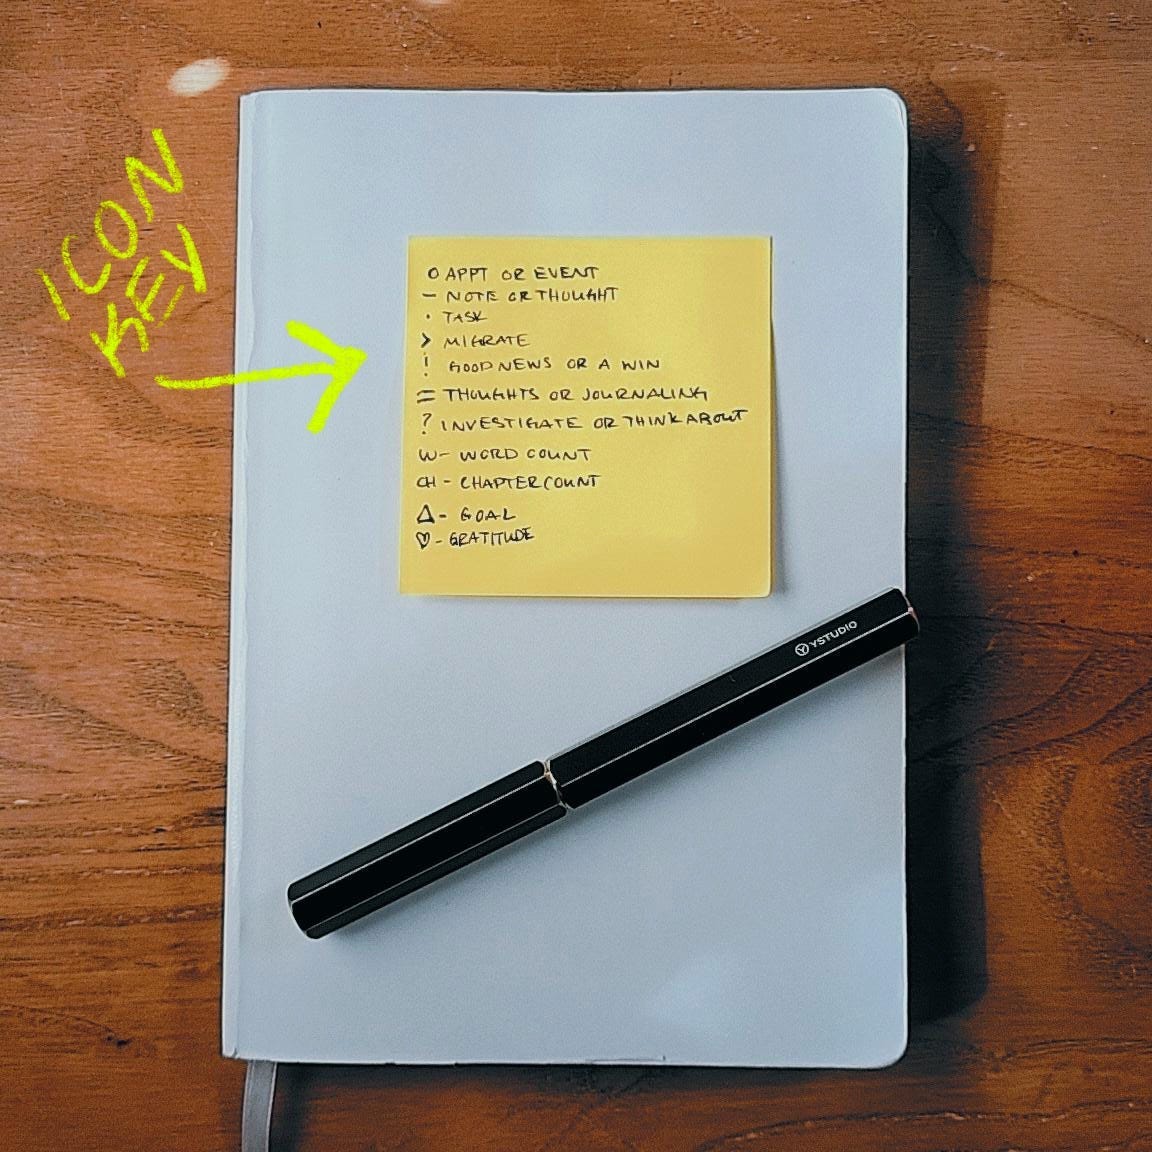 ICON
KEY
O APPT OR EVENT
— NOTE OR THOUGHT
· TASK
> MIGRATE
! GOOD NEWS OR A WIN
= THOUGHTS OR JOURNALING
? INVESTIGATE OR THINK ABOUT
W- WORD COUNT
CH - CHAPTER COUNT
△ - GOAL
♡ - GRATITUDE
YSTUDIO